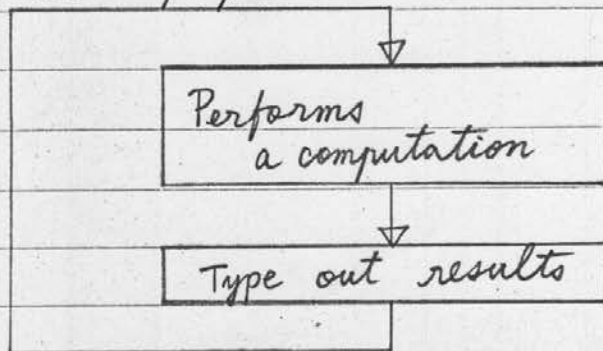 Performs
a computation
Type out results